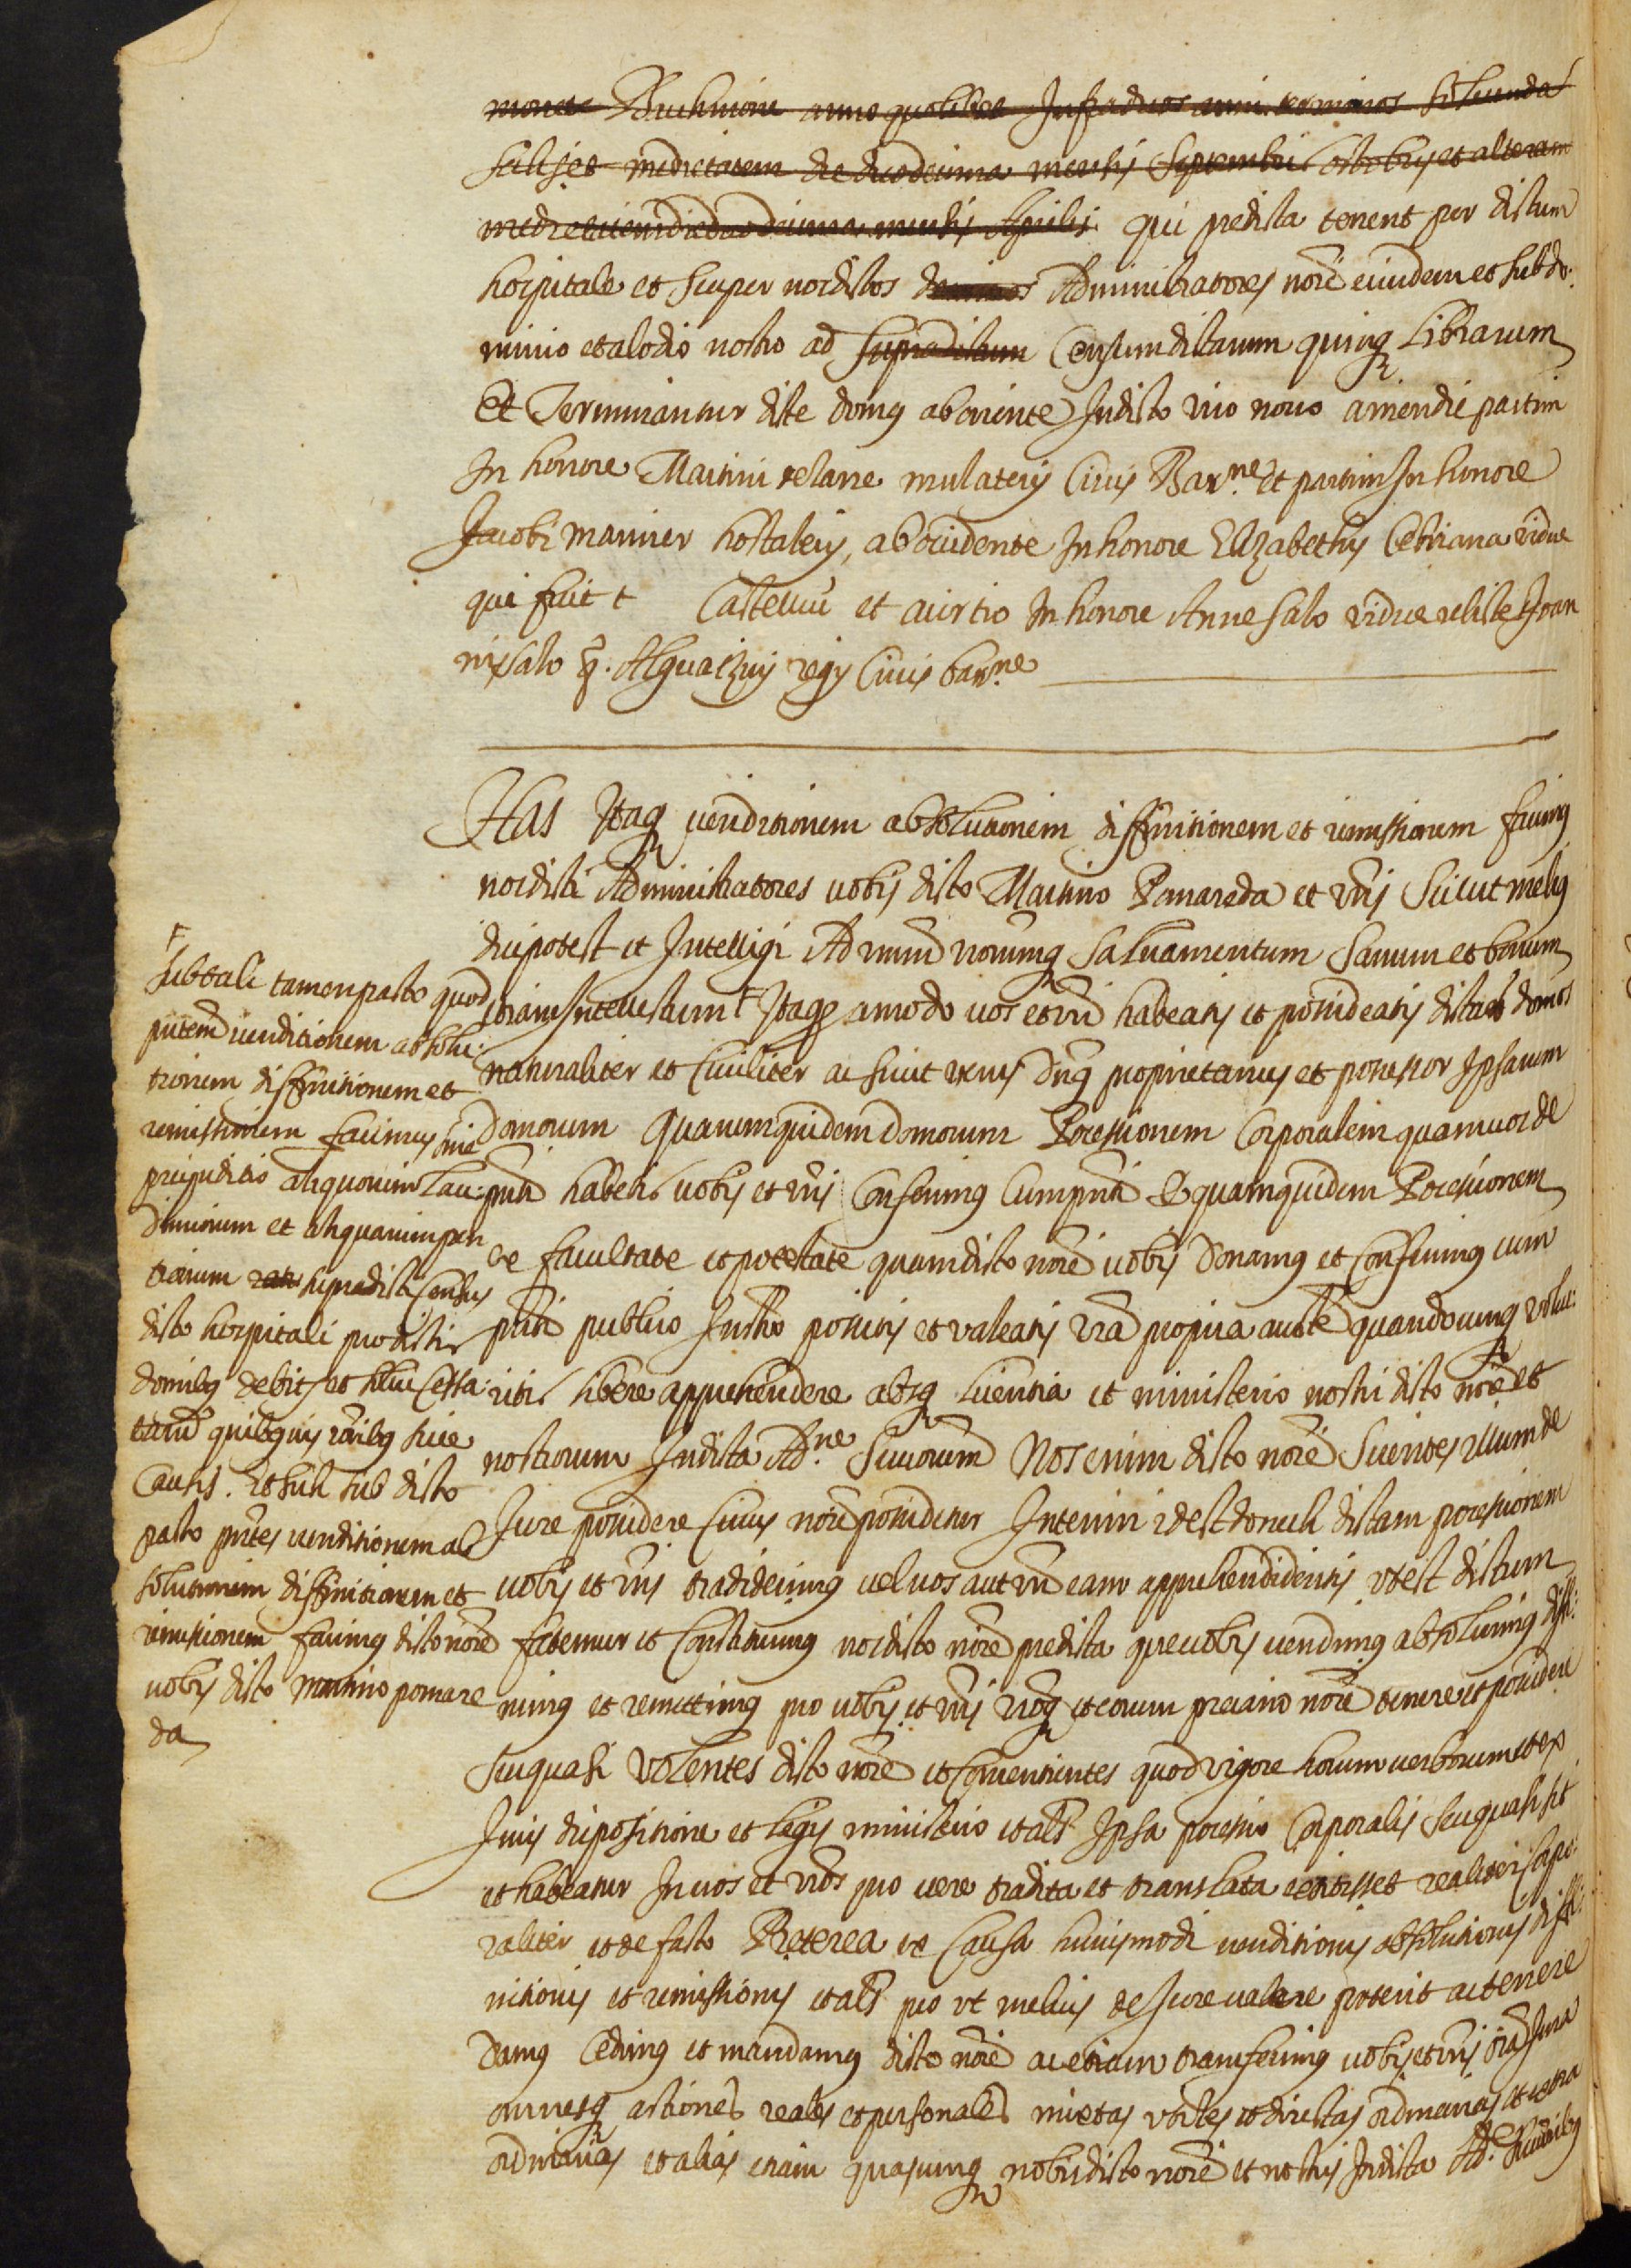 monete Barchinone anno quolibet Infra duos anni terminos soluendas
scilicet medietatem die duodecima mensis Septembris Octobris et alteram
medietatem die duodecima mensis Aprilis qui predicta tenent per dictum
hospitale et semper nos dictos dominos Administratores noīe eiusdem et sub do:
minio et alodio nostro ad supradictum Censum dictarum quinq Librarum
Et Terminantur dicte domus ab oriente In dicto vico nouo a meridie partim
In honore Martini telarre mulaterij Ciuis Barne. et partim In honore
Jacobi mariner hostalerij, ab occidente In honore Elizabethis Cebriana vidue
que fuit t Castellui et a circio In honore Anne Salo vidue relicte Joan
nis Salo q. Alguatzirij regij Ciuis barne.
Has Itaq venditionem absolutionem diffinitionem et remissionem facimus
nos dicti Administratores vobis dicto Martino Pomareda et vr̄is Sicut melius
dici potest et Intelligi Ad vr̄m vr̄orumq Saluamentum Sanum et bonum
etiam Intellectum F Itaq amodo vos et vr̄i habeatis et possideatis dictas domos
naturaliter et Ciuiliter ac sicut verus Dn̄s proprietarius et possessor Ipsarum
Domorum Quarumquidem Domorum Possessionem Corporalem quam vos de
pn̄ti habetis vobis et vr̄is Conferimus Cum pn̄ti Et quamquidem Possessionem
ex facultate et potestate quam dicto noīe vobis Donamus et Conferimus cum
pn̄ti publico Instro possitis et valeatis vr̄a propria aucte quandocunq volue:
ritis libere apprehendere absq licentia et ministerio nostri dicto noīe et
nostrorum In dicta Adne. Successorum Nos enim dicto noīe Scientes illum de
Jure possidere Cuius noīe possidetur Interim id est donech dictam possessionem
vobis et vr̄is tradiderimus vel vos aut vr̄i eam apprehenderitis vt est dictum
fatemur et Constituimus nos dicto noīe predicta que vobis vendimus absoluimus diffi:
nimus et remittimus pro vobis et vr̄is vr̄oq et eorum precario noīe tenere et possidere
seu quasi Volentes dicto noīe et Consentientes quod vigore horum verborum et ex
Juris dispositione et legis ministerio et als Ipsa possessio Corporalis seu quasi sit
et habeatur In vos et vr̄os pro vere tradita et translata ac si esset realiter Corpo:
raliter et de facto Preterea ex Causa huiusmodi venditionis absolutionis diffi:
nitionis et remissionis et als pro vt melius de Jure valere poterit ac tenere
Damus Cedimus et mandamus dicto noīe ac etiam transferimus vobis et vr̄is oīa Jura
omnesq actiones reales et personales mixtas vtiles et directas ordinarias et extra
ordinarias et alias etiam quascunq nobis dicto noīe et nostris In dicta Ade. successoribus
F
sub tali tamen pacto quod
pn̄tem venditionem absolu:
tionem diffinitionem et
remissionem facimus sine
preiuditio aliquorum lau:
dimiorum et aliquarum pen
tionum supradicti Census
dicto hospitali pro dictis
domibus debitis et huc Cessa:
tarum quibusuis rōnibus siue
Causis. Et sich sub dicto
pacto pn̄tes venditionem ab
solutionem diffinitionem et
remissionem facimus dicto noīe
vobis dicto martino pomare
da